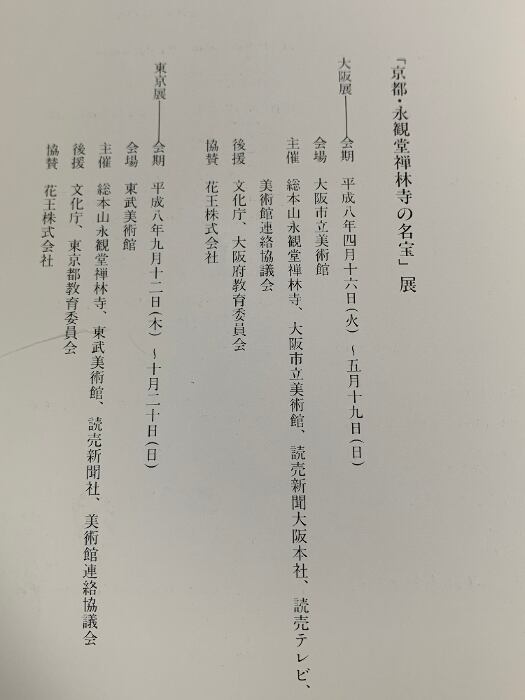 「京都・永観堂禅林寺の名宝」展
大阪展――会期　平成八年四月十六日(火)～五月十九日(日)
会場　大阪市立美術館
主催　総本山永観堂禅林寺、大阪市立美術館、読売新聞大阪本社、読売テレビ、
美術館連絡協議会
後援　文化庁、大阪府教育委員会
協賛　花王株式会社
東京展――会期　平成八年九月十二日(木)～十月二十日(日)
会場　東武美術館
主催　総本山永観堂禅林寺、東武美術館、読売新聞社、美術館連絡協議会
後援　文化庁、東京都教育委員会
協賛　花王株式会社